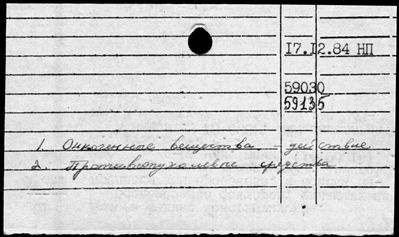 17.12.84 НП
59030
59135
1. Онкогенные вещества - действие
2. Противоопухолевые средства